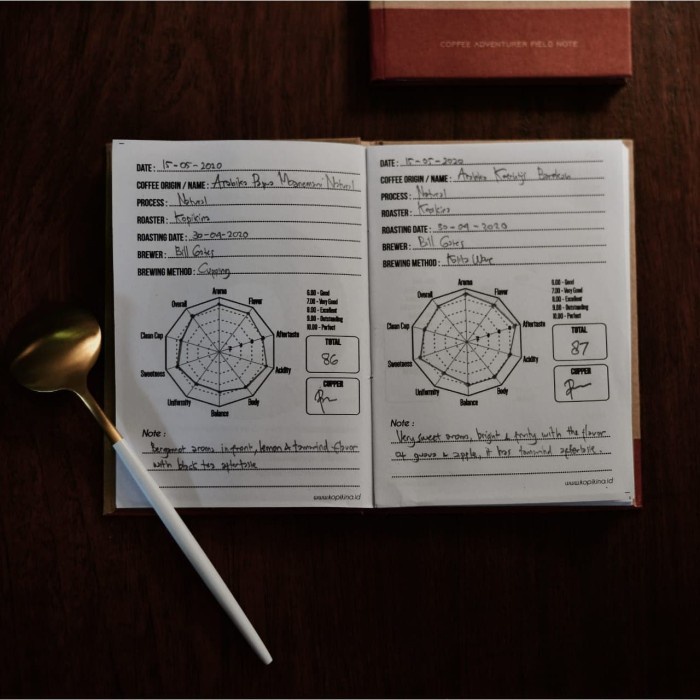 COFFEE ADVENTURER FIELD NOTE
DATE : 15-05-2020
COFFEE ORIGIN / NAME : Arabika Papua Moanemani Natural
PROCESS : Natural
ROASTER : Kopikina
ROASTING DATE : 30-04-2020
BREWER : Bill Gates
BREWING METHOD : Cupping
Aroma
Flavor
Aftertaste
Acidity
Body
Balance
Uniformity
Sweetness
Clean Cup
Overall
6.00 - Good
7.00 - Very Good
8.00 - Excellent
9.00 - Outstanding
10.00 - Perfect
TOTAL
86
CUPPER
Note :
Bergamot aroma in front, lemon & tamarind flavor
with black tea aftertaste
www.kopikina.id
DATE : 15-05-2020
COFFEE ORIGIN / NAME : Arabika
PROCESS : Natural
ROASTER : Kopikina
ROASTING DATE : 30-04-2020
BREWER : Bill Gates
BREWING METHOD : Kalita Wave
Aroma
Flavor
Aftertaste
Acidity
Body
Balance
Uniformity
Sweetness
Clean Cup
Overall
6.00 - Good
7.00 - Very Good
8.00 - Excellent
9.00 - Outstanding
10.00 - Perfect
TOTAL
87
CUPPER
Note :
Very sweet aroma, bright & fruity with the flavor
of guava & apple, it has tamarind aftertaste.
www.kopikina.id